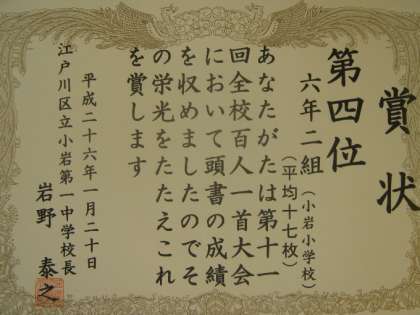 賞状
第四位
六年二組（小岩小学校）
（平均十七枚）
あなたがたは第十一
回全校百人一首大会
において頭書の成績
を収めましたのでそ
の栄光をたたえこれ
を賞します
平成二十六年一月二十日
江戸川区立小岩第一中学校長
岩野泰之